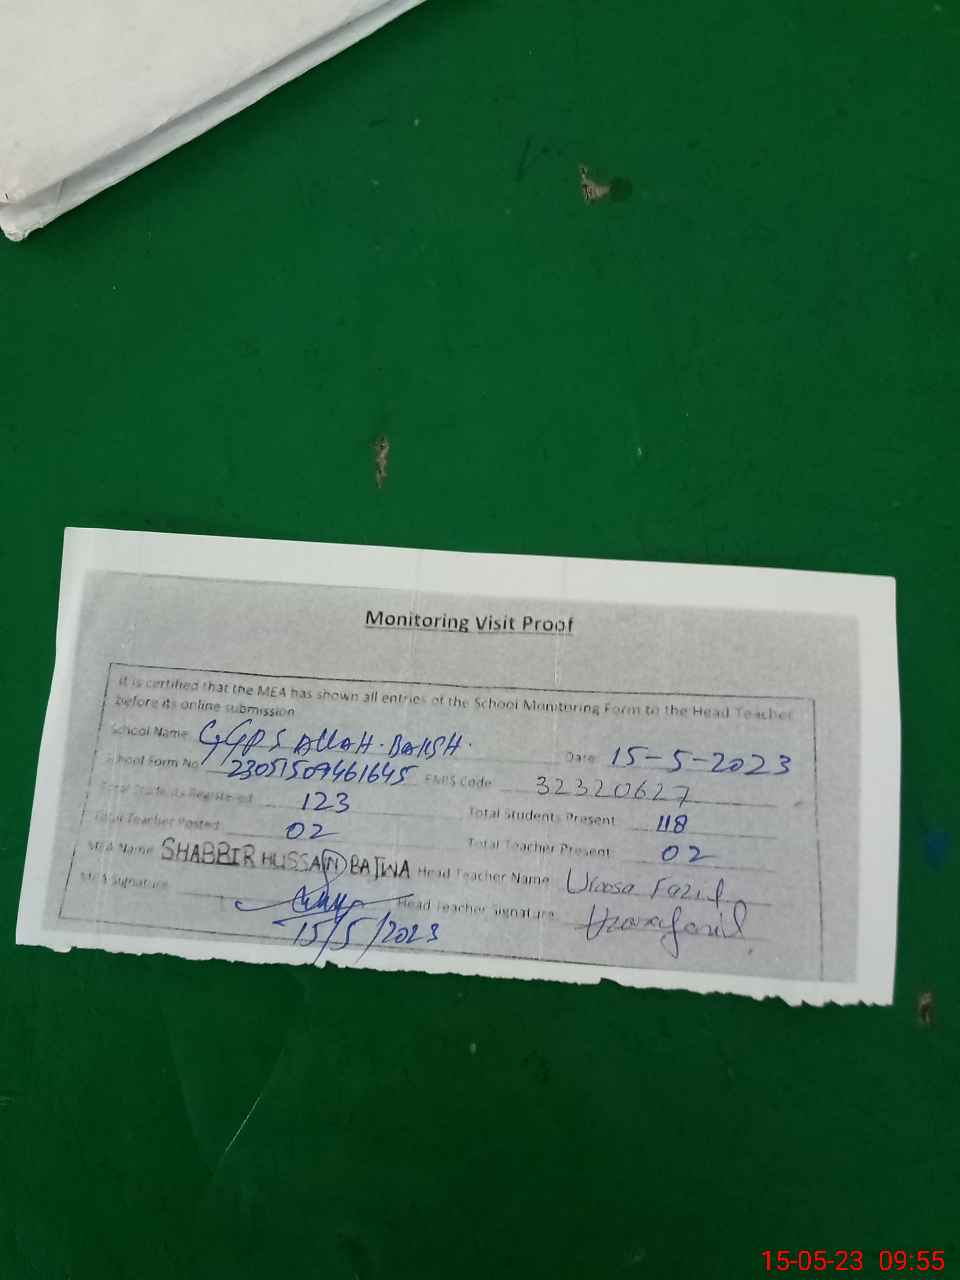 Monitoring Visit Proof
It is certified that the MEA has shown all entries of the School Monitoring Form to the Head Teacher
before its online submission
School Name GGPS ALLAH. BAKSH. Date 15-5-2023
School Form No 23051509461645 EMIS Code 32320627
Total Students Registered 123 Total Students Present 118
Total Teacher Posted 02 Total Teacher Present 02
MEA Name SHABBIR HUSSAIN BAJWA Head Teacher Name Uroosa Fazil
MEA Signature Head Teacher Signature
15/5/2023
15-05-23 09:55